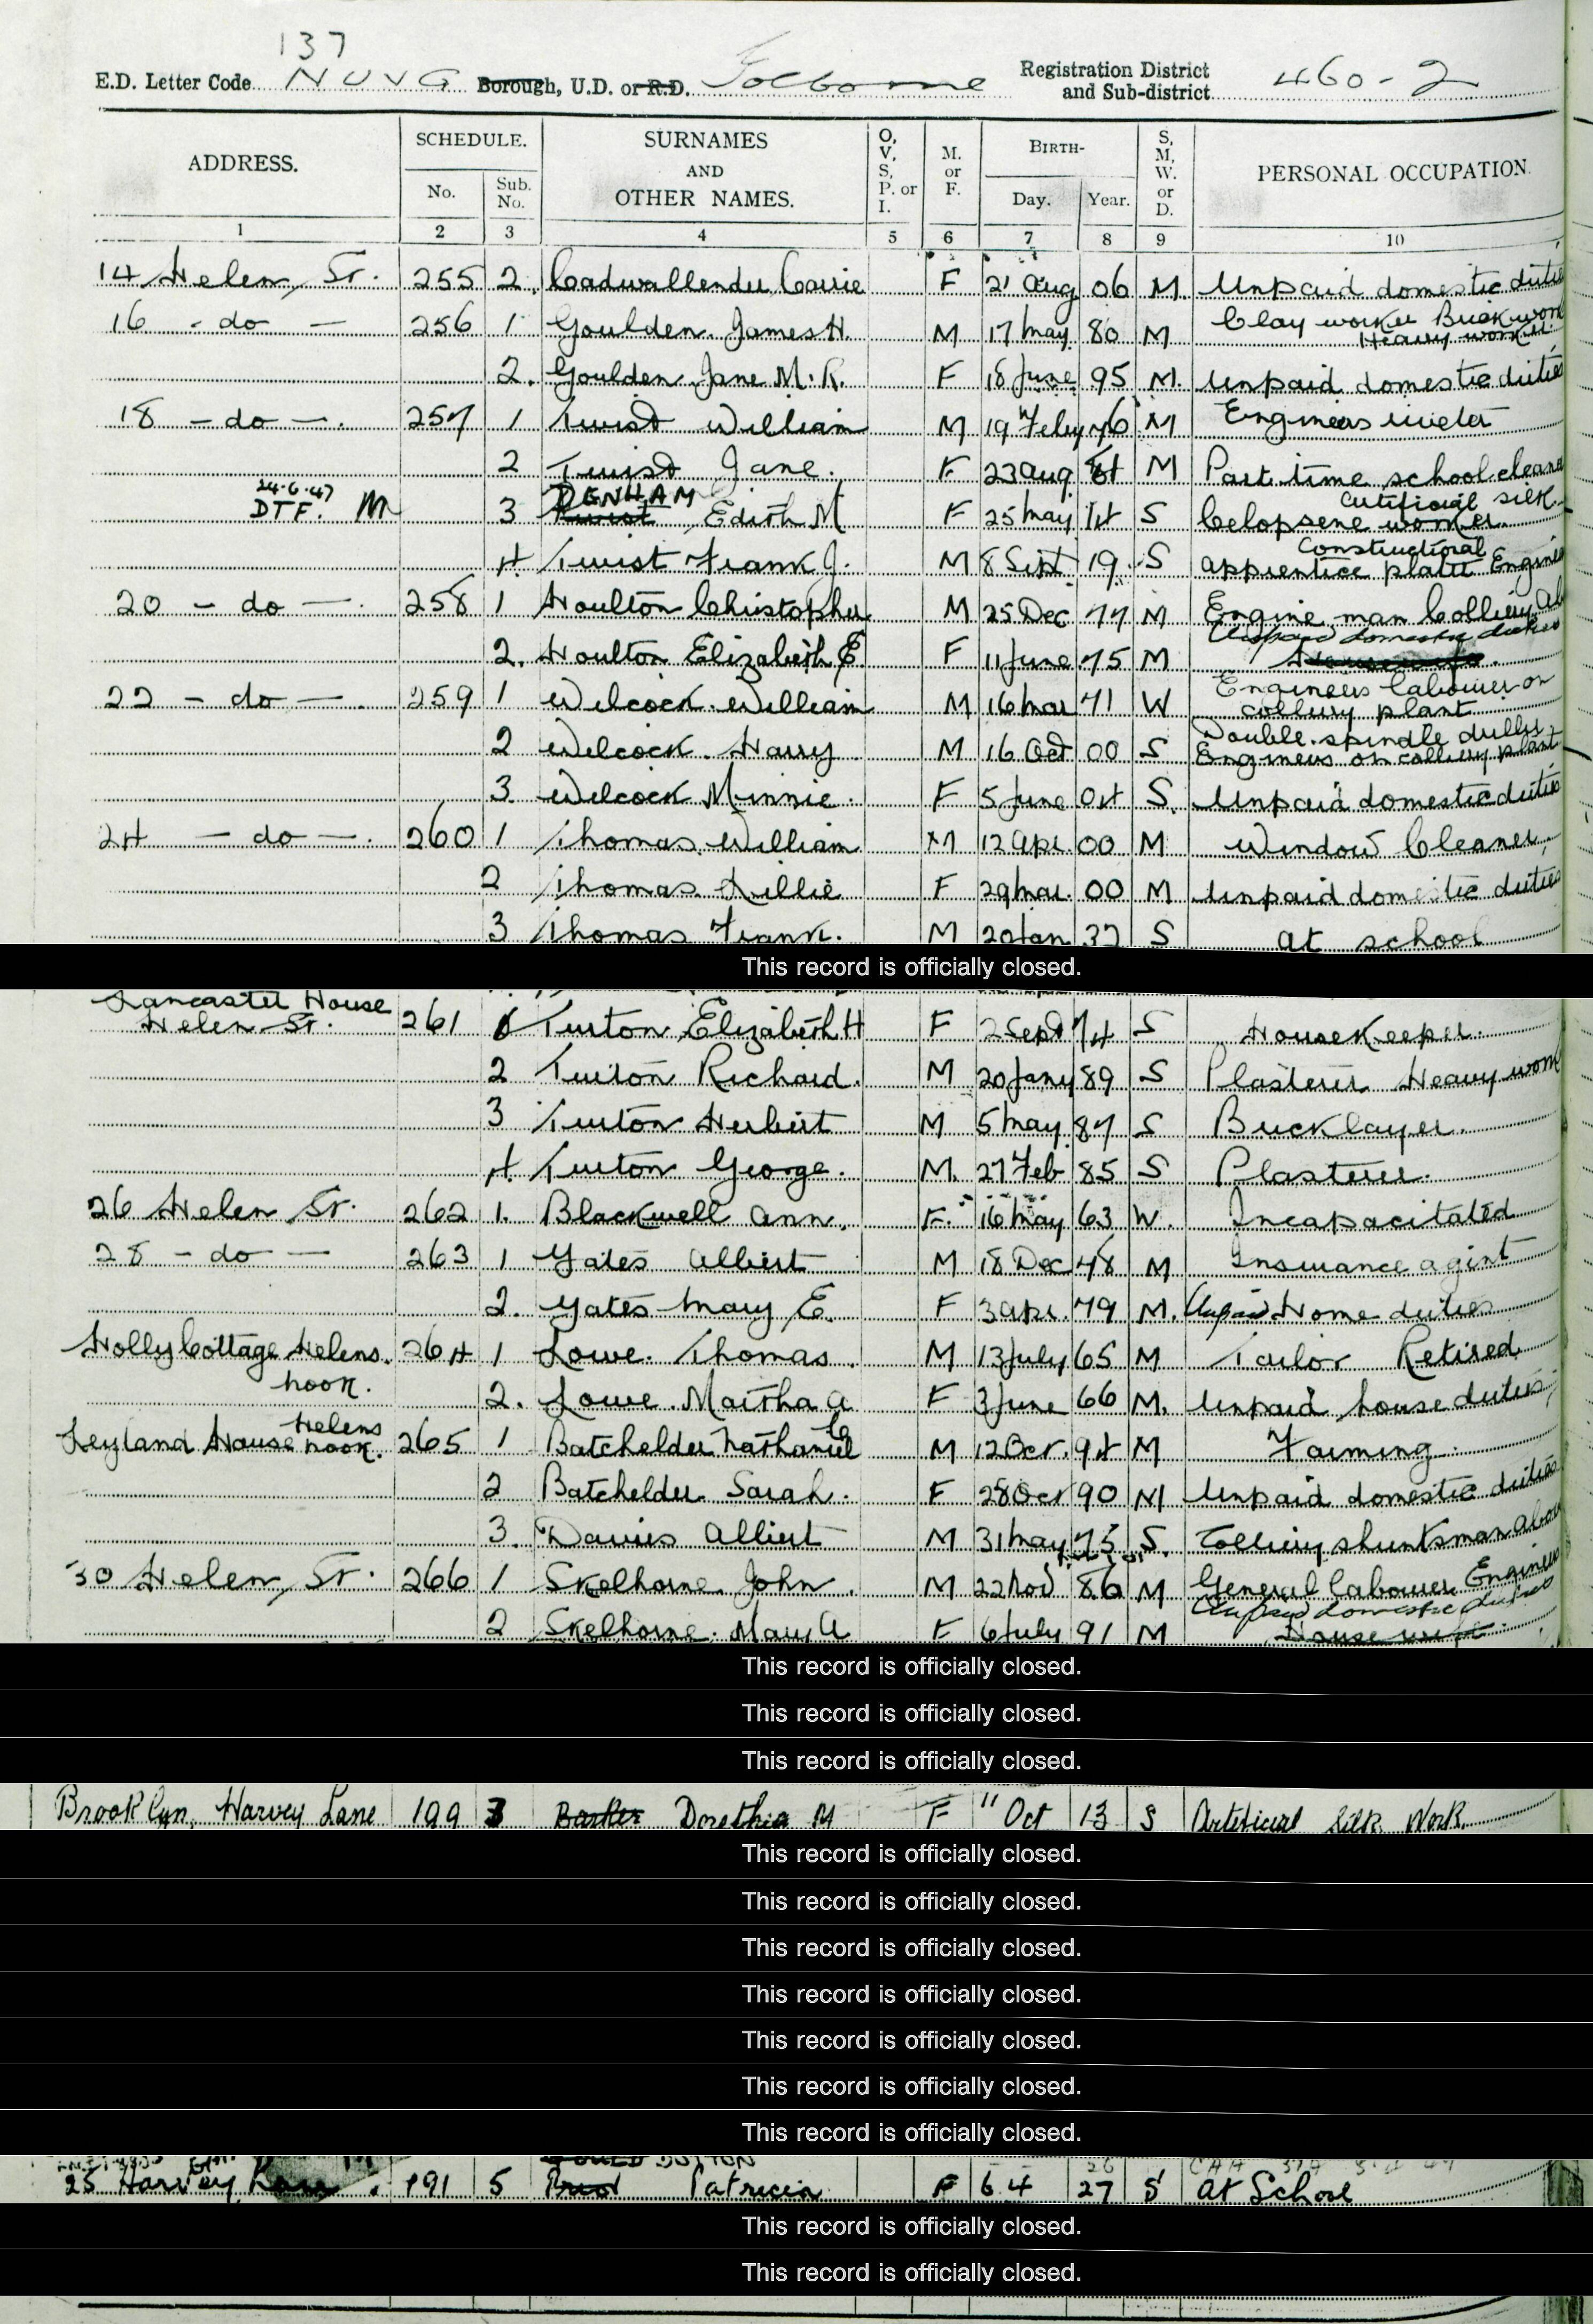 137
E.D. Letter Code NUVG Borough, U.D. or R.D. Golborne Registration District and Sub-district 460-2
ADDRESS. SCHEDULE. No. Sub. No. SURNAMES AND OTHER NAMES. O, V, S, P. or I. M. or F. BIRTH- Day. Year. S, M, W. or D. PERSONAL OCCUPATION.
1 2 3 4 5 6 7 8 9 10
14 Helen St. 255 2. Cadwallender Carrie F 21 Aug 06 M. Unpaid domestic duties
16 - do - 256 1 Goulden James H. M 17 May 80 M Clay worker Brickwork Heavy worker
2. Goulden Jane M. R. F 18 June 95 M. Unpaid domestic duties
18 - do - 257 1 Twist William M 19 Feby 76 M Engineers riveter
2 Twist Jane. F 23 Aug 81 M Part time school cleaner
24.6.47 DTF. M 3 Twist DENHAM Edith M F 25 May 14 S Celopsene worker artificial silk
4 Twist Frank J. M 8 Sept 19 S Apprentice plater Constructional Engine
20 - do - 258 1 Houlton Christopher M 25 Dec 77 M Engine man Colliery Ab
2. Houlton Elizabeth E. F 11 June 75 M Unpaid domestic duties
22 - do - 259 1 Wilcock William M 16 Mar 71 W Engineers labourer on colliery plant
2 Wilcock Harry M 16 Oct 00 S Double spindle driller Engineers on colliery plant
3 Wilcock Minnie F 5 June 04 S. Unpaid domestic duties
24 - do - 260 1 Thomas William M 12 Apr. 00 M Window Cleaner
2 Thomas Lillie F 29 Mar. 00 M Unpaid domestic duties
3 Thomas Frank. M 20 Jan 32 S At school
This record is officially closed.
Lancaster House Helen St. 261 1 Turton Elizabeth H F 2 Sept 74 S Housekeeper
2 Turton Richard M 20 Jany 89 S Plasterer Heavy work
3 Turton Herbert M 5 May 87 S Bricklayer.
4 Turton George. M. 27 Feb 85 S Plasterer.
26 Helen St. 262 1. Blackwell Ann. F. 16 May 63 W. Incapacitated
28 - do - 263 1 Yates Albert M 18 Dec 78 M Insurance agent
2. Yates Mary E. F 3 Apr. 79 M. Unpaid Home duties
Holly Cottage Helens nook. 264 1 Lowe. Thomas M 13 July 65 M Tailor Retired
2. Lowe. Martha A F 3 June 66 M. Unpaid house duties
Leyland House Helens nook. 265 1 Batchelder Nathaniel M 12 Oct. 94 M Farming
2 Batchelder Sarah F 28 Oct 90 M Unpaid domestic duties
3. Davies Albert M 31 May 75 S. Colliery shuntsman above
30 Helen St. 266 1 Skelhorne John M 22 Nov 86 M General labourer Engineer
2 Skelhorne. Mary A F 6 July 91 M Unpaid domestic duties House wife
This record is officially closed.
This record is officially closed.
This record is officially closed.
Brooklyn, Harvey Lane 199 3 Barker Dorethia M F 11 Oct 13 S Artificial Silk Work.
This record is officially closed.
This record is officially closed.
This record is officially closed.
This record is officially closed.
This record is officially closed.
This record is officially closed.
This record is officially closed.
25 Harvey Lane 191 5 Patricia F 6 4 27 S At School
This record is officially closed.
This record is officially closed.